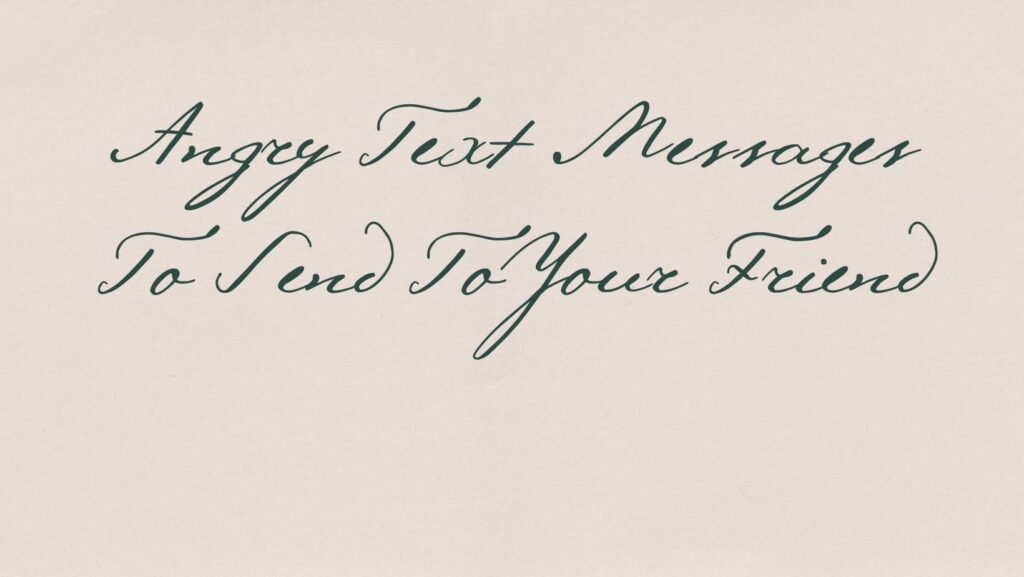 Angry Text Messages
To Send To Your Friend